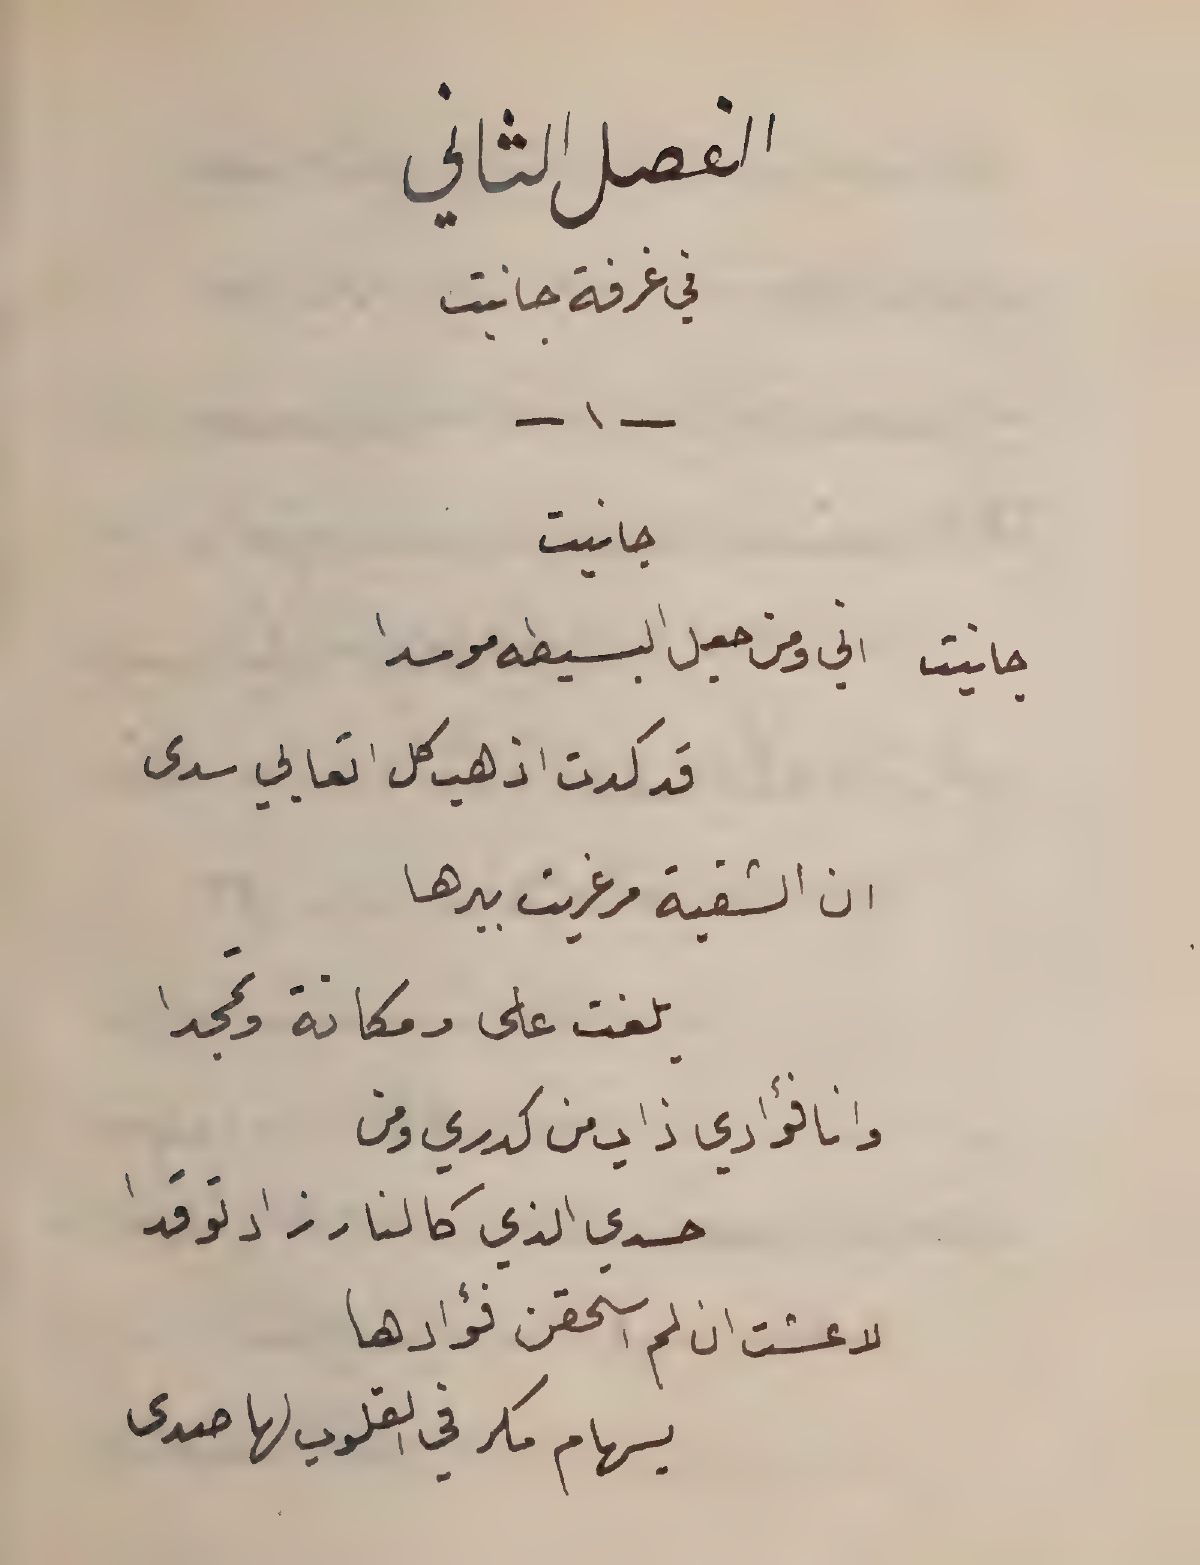 الفصل الثاني
في غرفة جانيت
— ١ —
جانيت
جانيت اني ومن جعل البسيطه موسدا
قد كدت اذهب كل اتعابي سدى
ان الشقية مرغريت ببرها
بلغت على ومكانة وتمجدا
وانا فؤادي ذاب من كدري ومن
حسدي الذي كالنار زاد توقدا
لا عشت ان لم اسحقن فؤادها
بسهام مكر في القلوب لها صدى